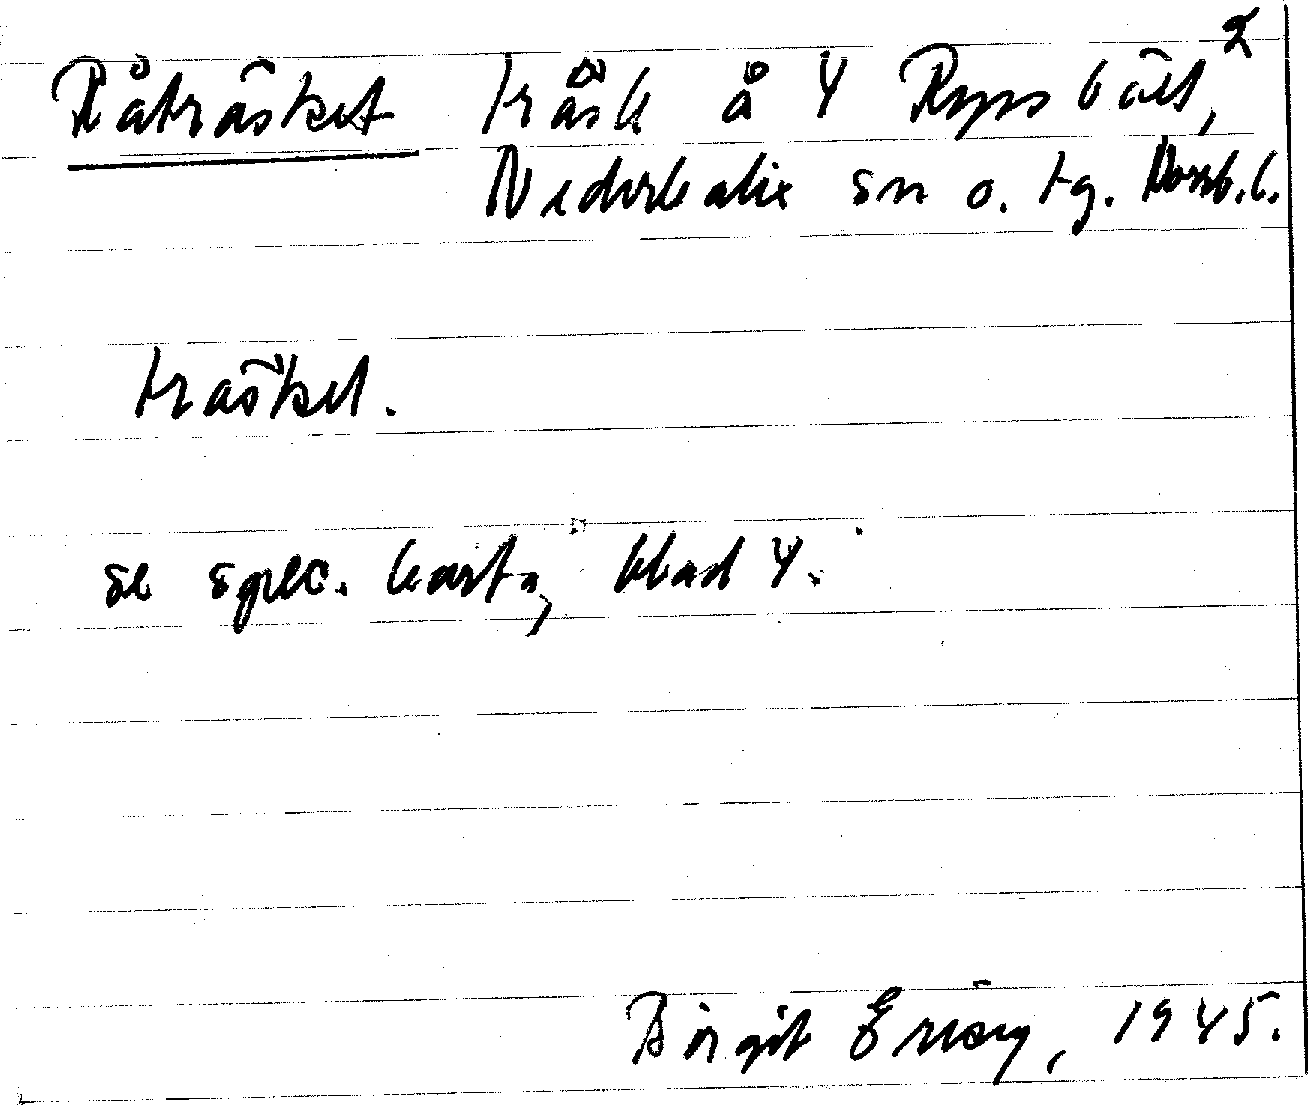 Råträsket träsk å 4 Ryssbält,²
Nederkalix sn o. tg. Norrb. l.
träsket.
se spec. karta, blad 4.
Birgit Eriksson, 1945.